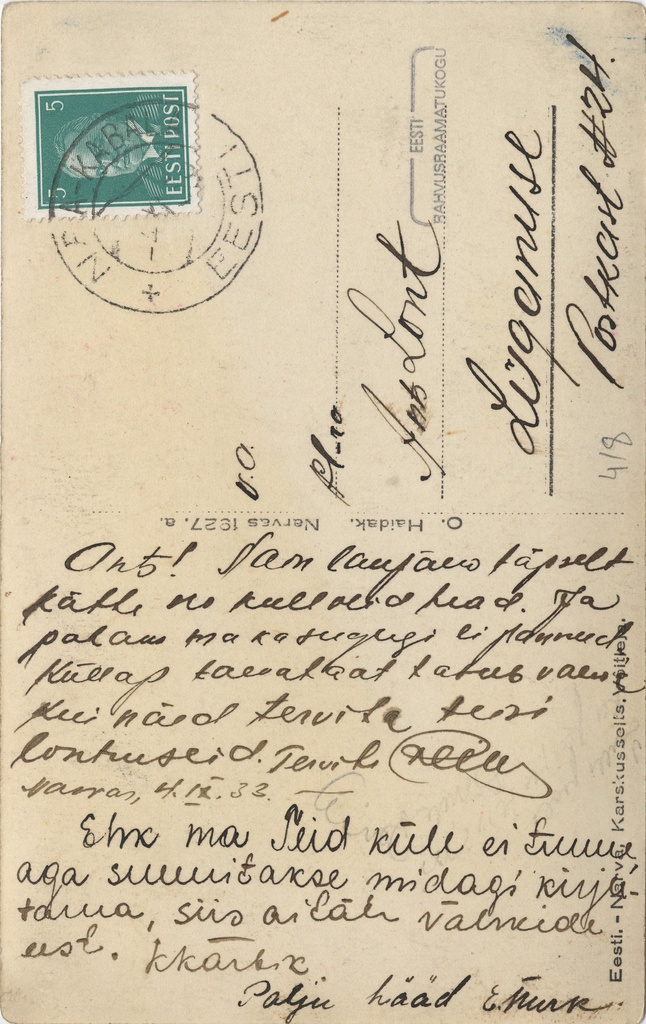 5
5
EESTI POST
NRV-KABALA
EESTI
EESTI
RAHVUSRAAMATUKOGU
v.o.
Hl-ra
Ants Lont
Lüganuse
Postkast #24.
4/8
O. Haidak. Narvas 1927. a.
Ants! Sain laupäev täpselt
kätte no küll olid head. Ja
palam ma ka sugugi ei
Küllap taevataat tasub vaeva
Kui näed tervita teisi
lontruseid. Tervit.
Narvas, 4.IX.33.
Ehk ma Teid küll ei tunne
aga sunnitakse midagi kirju
tama, siis aitäh välmide
eest. KKärbik
Palju hääd E.Kurk
Eesti. - Narva. Karskusselts. Võitleja.